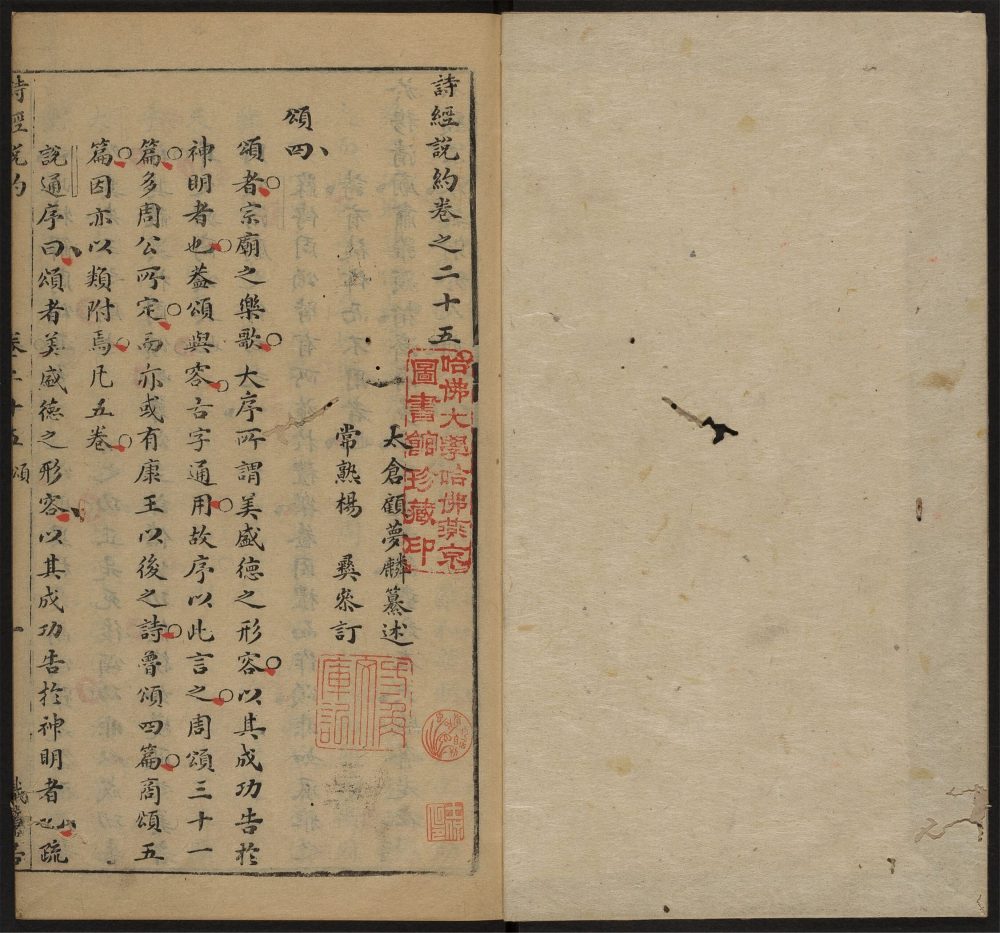 詩經說約卷之二十五
太倉顧夢麟纂述
常熟楊　彝叅訂
頌四
頌者宗廟之樂歌大序所謂美盛德之形容以其成功告於
神明者也葢頌與容古字通用故序以此言之周頌三十一
篇多周公所定而亦或有康王以後之詩魯頌四篇商頌五
篇因亦以類附焉凡五卷
說通序曰頌者美盛德之形容以其成功告於神明者也疏
詩經說約
卷二十五頌
一
織簾居
哈佛大學哈佛燕京
圖書館珍藏印